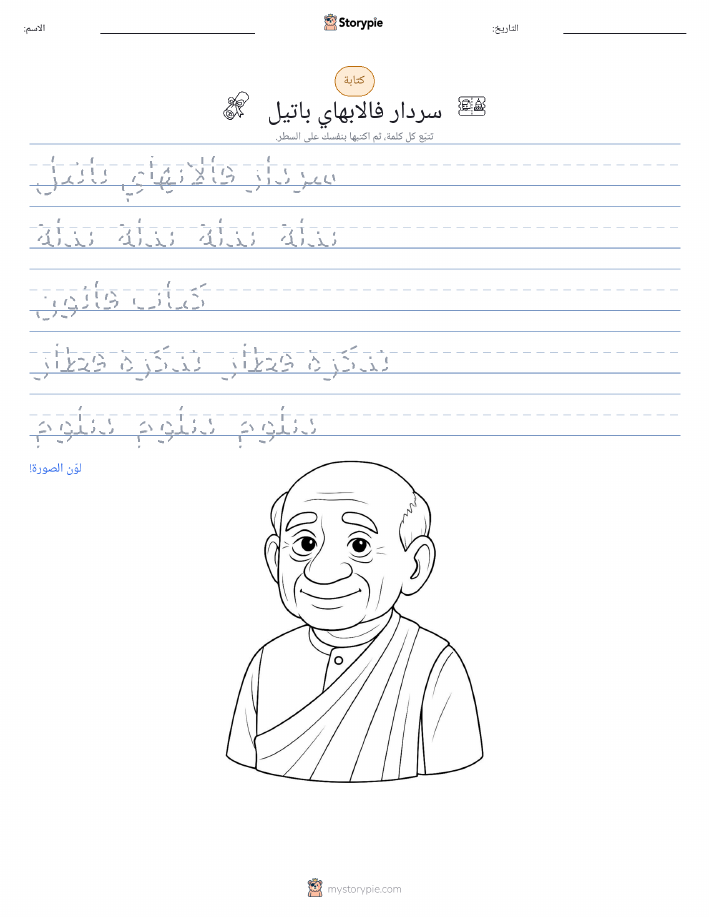 Storypie
الاسم:
التاريخ:
كتابة
سردار فالابهاي باتيل
تتبّع كل كلمة، ثم اكتبها بنفسك على السطر.
سردار فالابهاي باتيل
بدلة بدلة بدلة بدلة
كتاب قانون
تذكرة قطار تذكرة قطار
دبلوم دبلوم دبلوم
لوّن الصورة!
mystorypie.com